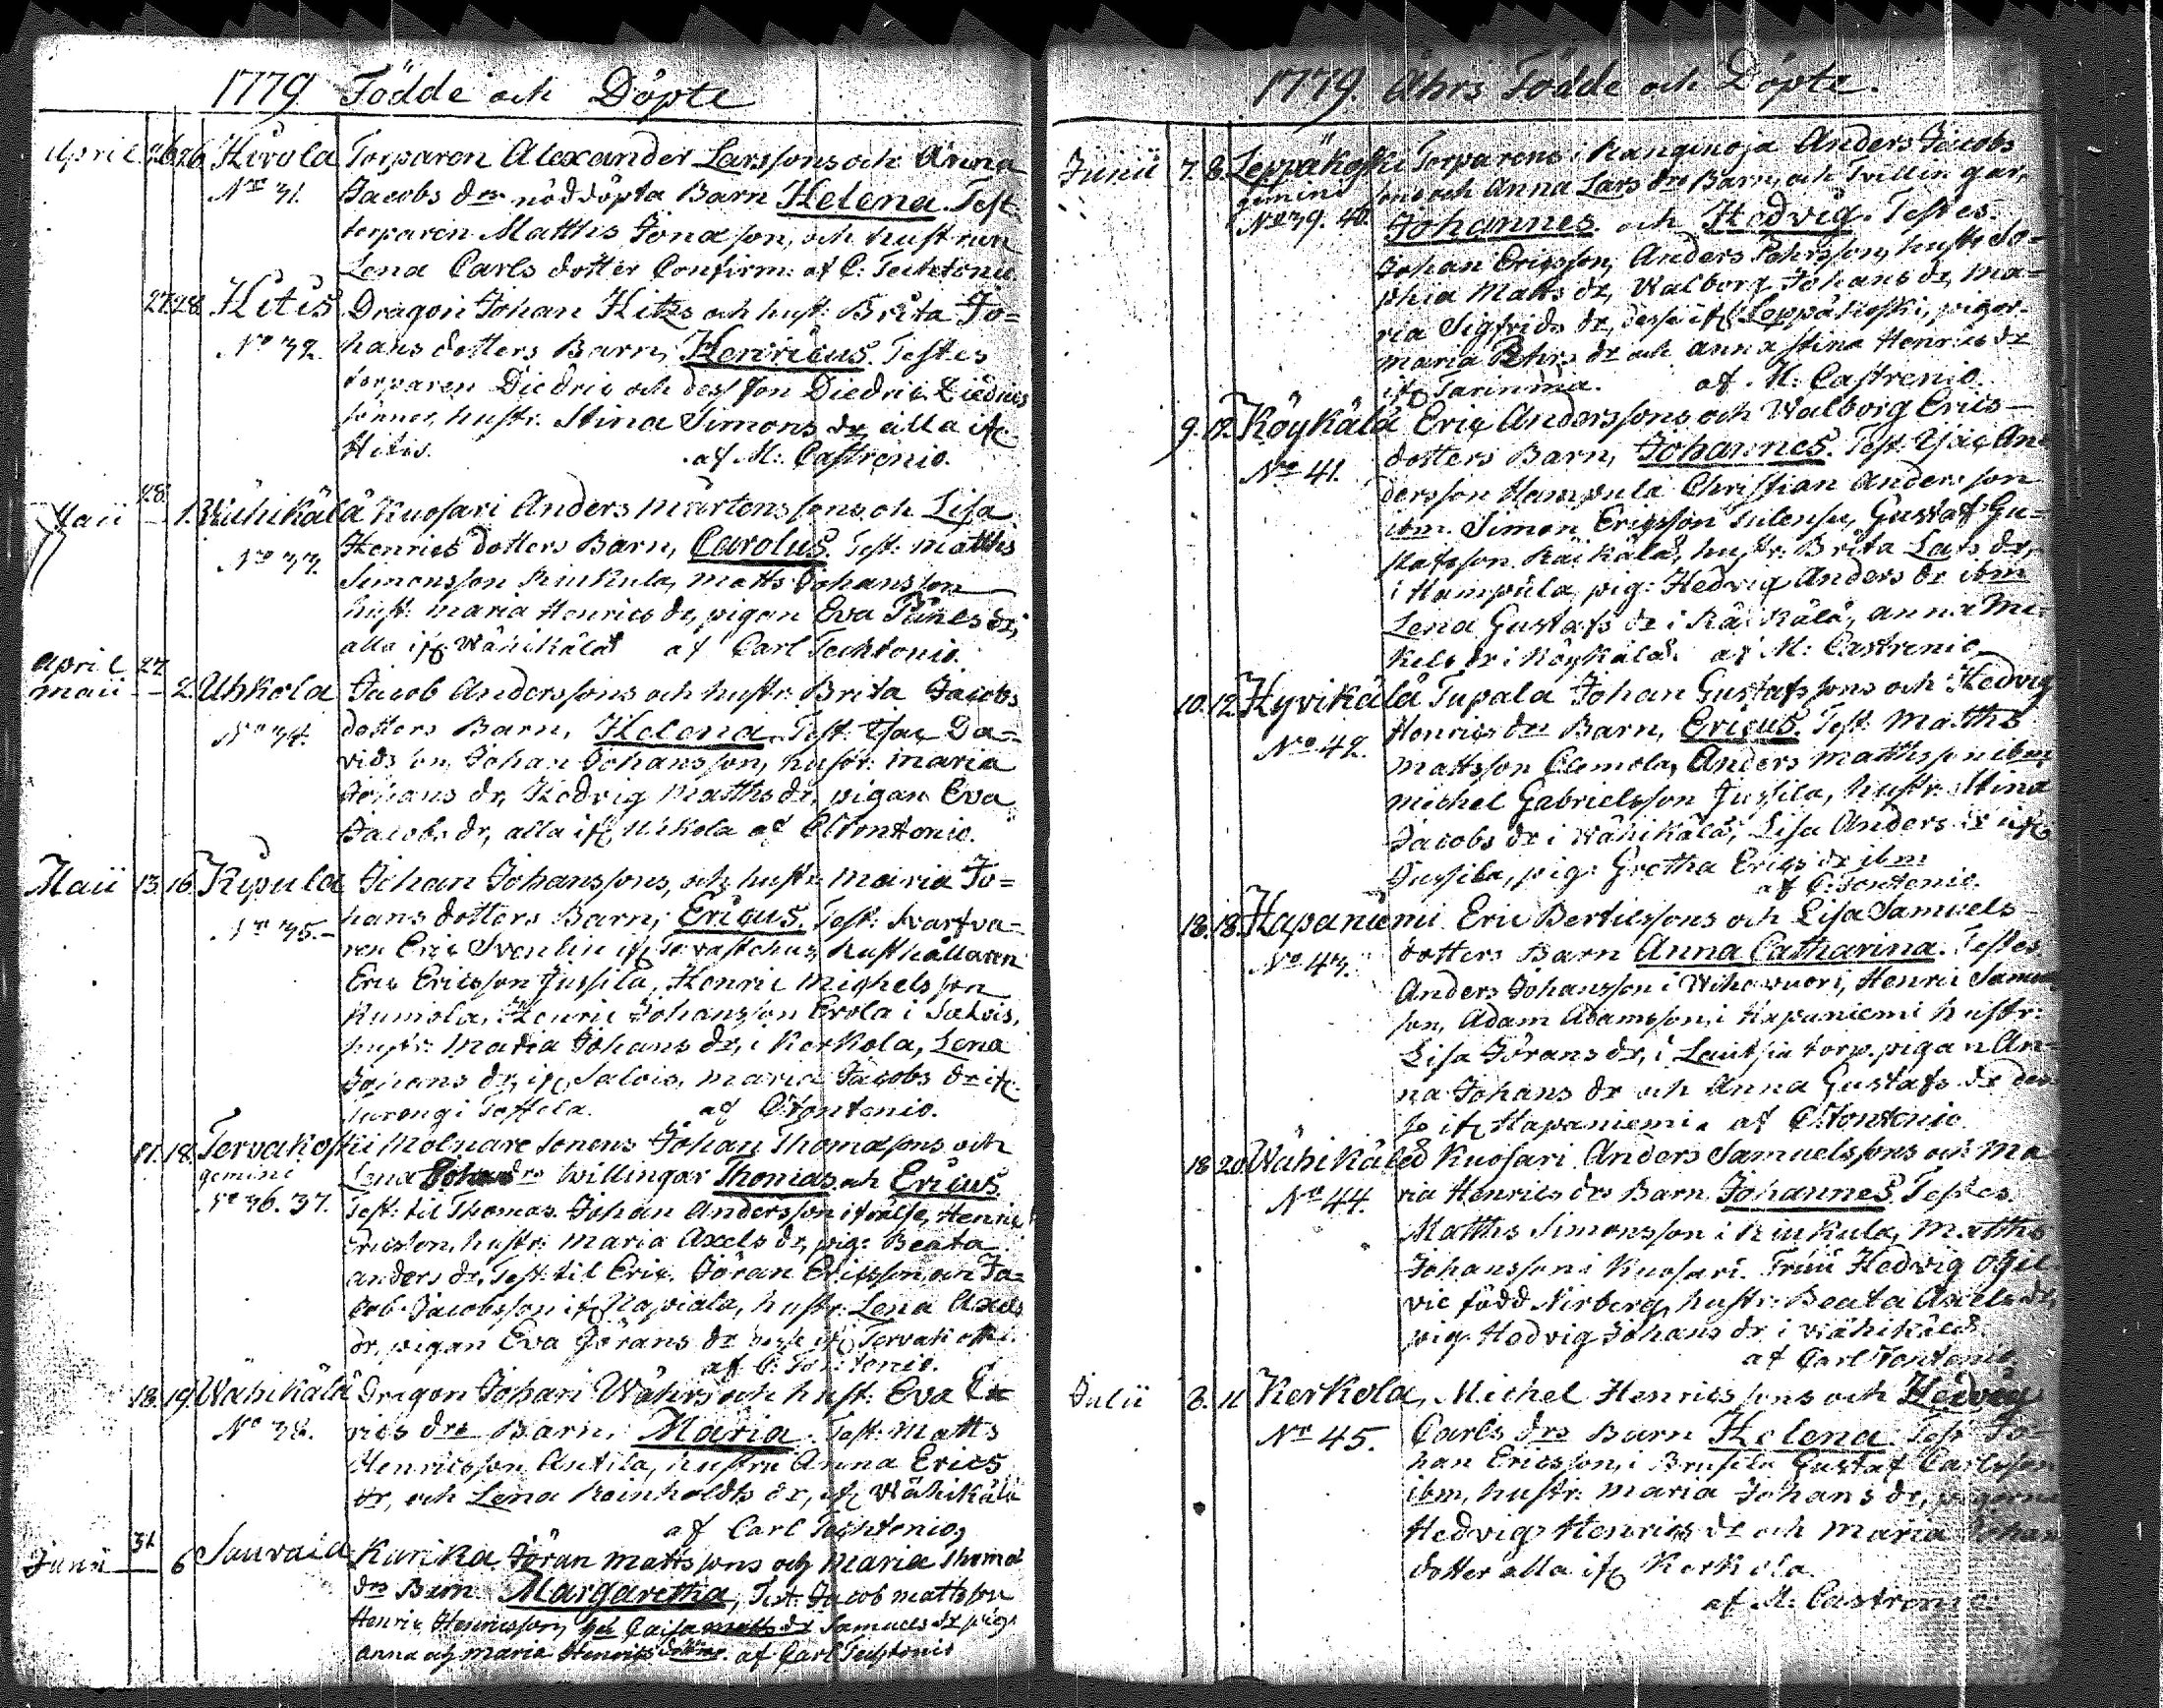 1779 Födde och Döpte
April 26 26 Hirola Torparen Alexander Larssons och Anna
No 31. Jacobs drs nöddöpta Barn Helena. Test:
torparen Matths Jonason, och hustrun
Lena Carls dotter Confirm: af C: Techtonio
27 28 Hitis Dragon Johan Hitzs och hust: Brita Jo=
No 32. hans dotters Barn, Henricus. Testes
torparen Diedric och dess son Diedric Diedrics
sönner, hustr. Stina Simons dr, alla ifr
Hitis. af M: Castrenio.
Maii 28 1. Wähikälä Kuosari Anders Mårtens sons och Lisa
No 33. Henrics dotters Barn, Carolus. Test: Matths
Simonsson Rinkula, Matts Johansson
hust: Maria Henrics dr, pigan Eva dr,
alla ifr Wähikälä af Carl Techtonio.
April 27
Maii 2. Uhkola Jacob Anderssons och hustr: Brita Jacobs
No 34. dotters Barn, Helena. Test: Isac Da=
vidsson, Johan Johansson, hustr: Maria
Johans dr, Hedvig Matths dr, pigan Eva
Jacobs dr, alla ifr Uhkola af C:
Maii 13. 16. Kipula Johan Johanssons, och hustr: Maria Jo=
No 35. hans dotters Barn, Ericus. Test: Svarfva=
ren Eric Svenlin ifr Tavastehus, husthållaren
Eric Ericsson Jussila, Henric Michelsson
Kumola, Henric Johansson Erola i Salois,
hustr: Maria Johans dr, i Kerkola, Lena
Johans dr, ifr Salois, Maria Jacobs dr ifr
Turengi Toffela. af C: Tontonio.
17. 18. Tervakoski Molnare sonens Johan Thomæsons och
gemini Lena drs twillingar Thomas och Ericus.
No 36. 37. Test: til Thomas. Johan Andersson i frälse, Henric
Ericsson, hustr: Maria Axels dr, pig: Beata
Anders dr. Test: til Eric. Jöran Ericsson och Ja=
cob Jacobsson ifr Napiala, hustr: Lena Axels
dr, pigan Eva Jörans dr desse ifr Tervakoski.
af C: Tontonio.
18. 19. Wähikälä Dragon Johan Währs och hust: Eva Er
No 38. rics drs Barn, Maria. Test: Matts
Henricsson Antila, hustru Anna Erics
dr, och Lena Reinholdts dr, ifr Wähikälä
af Carl Techtonio,
Junii 31 6 Sauvala Karika. Jöran Mattssons och Maria Thomæ
drs Barn Margaretha, Test. Jacob Mattsson
Henric Henricsson, hu Caisa Samuels dr pig:
Anna och Maria Henrics döttrar. af Carl Techtonio
1779. Åhrs Födde och Döpte.
Junii 7. 8. Leppäkoski Torparens i Kanginoja Anders Jacobs
gemini sons och Anna Lars drs Barn, och Tvillingar,
No 39. 40. Johannes och Hedvig. Testes.
Johan Ericsson, Anders Pehrsson, hustr: So=
phia Matts dr, Walborg Johans dr, Ma=
ria Sigfrids dr, desse ifr Leppäkoski, pigor
Maria Pehrs dr och Anna Stina Henrics dr
ifr Tarinmäa. af M: Castrenio.
9. 12. Köykälä Eric Anderssons och Walborg Erics
No 41. dotters Barn, Johannes. Test: Isac An
dersson Hampula Christian Andersson
ibm. Simon Ericsson Gustaf Gu=
stafsson Räikälä, hustr: Brita Lars dr,
i Hampula, pig: Hedvig Anders dr ibm
Lena Gustafs dr i Räikälä, Anna Mi=
kels dr i Köykälä. af M: Castrenio
10. 12. Hyvikälä Tupala Johan Gustafssons och Hedvig
No 42. Henrics drs Barn, Ericus. Test. Matths
Mattsson Clemola, Anders Matthsson ibm
Michel Gabrielsson Jussila, hustr: Stina
Jacobs dr i Wähikälä, Lisa Anders dr ifr
Jussila, pig: Gretha Erics dr ibm
af C: Tontonio.
18. 18. Hapaniemi Eric Bertilssons och Lisa Samuels
No 43. dotters Barn Anna Catharina. Testes
Anders Johansson i Wihavuori, Henric Samu
son, Adam Adamsson, i Hapaniemi hustr:
Lisa Jörans dr, i Lautsia torp. pigan An-
na Johans dr och Anna Gustafs dr des
se ifr Hapaniemi. af C: Tontonio
18 20 Wähikälä Kuosari Anders Samuelssons och Ma
No 44. ria Henrics drs Barn Johannes. Testes.
Matths Simonsson i Rinkula, Matths
Johansson i Kuosari. Fruu Hedvig Ogil
vie född Nirberg, hustr: Beata Axels dr,
pig: Hedvig Johans dr i Wähikälä.
af Carl Tontonio
Julii 8. 11 Kerkola, Michel Henricssons och Hedvig
No 45. Carls drs Barn Helena. Test Jo-
han Ericsson, i Brusila Gustaf Carlsson
ibm, hustr: Maria Johans dr, pigorna
Hedvig Henrics dr och Maria Johan
dotter alla ifr Kerkola.
af M. Castrenio.